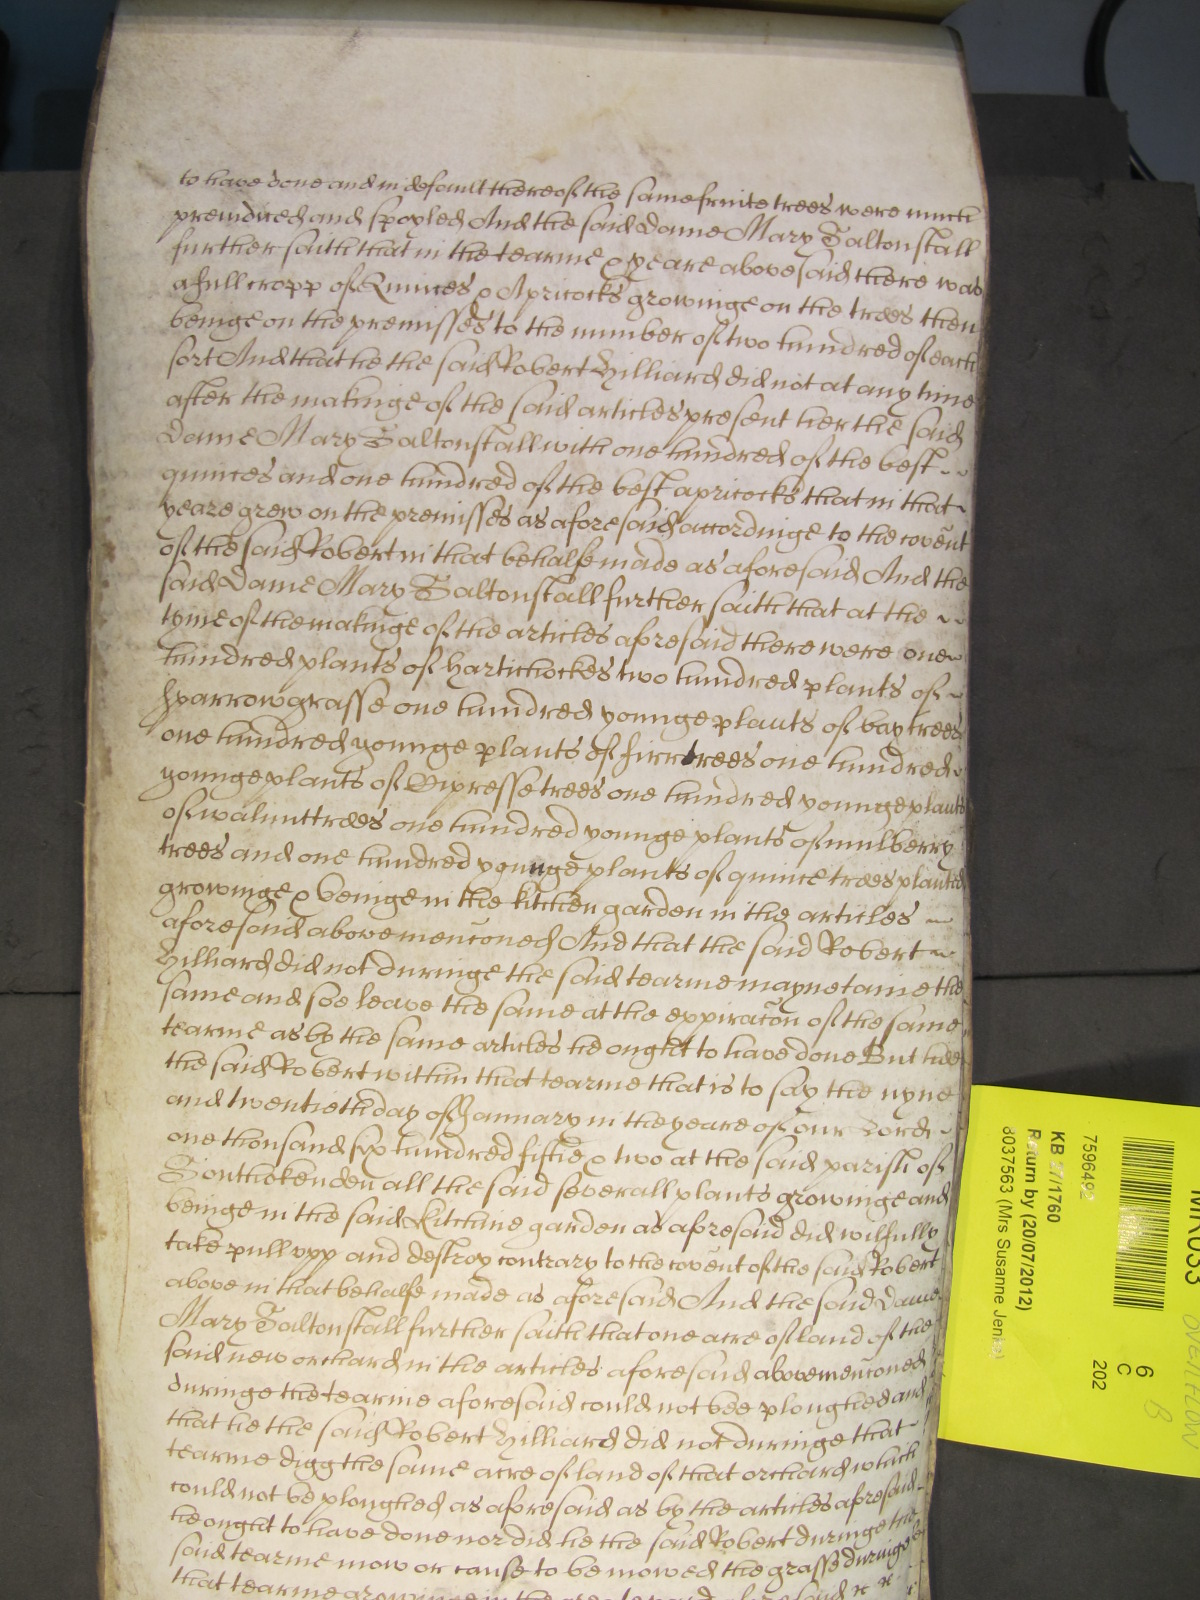 to have done and in default thereof the same fruite trees were much
preiudiced and spoyled And the said Dame Mary Saltonstall
further saith that in the tearme & yeare abovesaid there was
a full cropp of Quinces & Apricocks growinge on the trees then
beinge on the premisses to the number of two hundred of each
sort And that he the said Robert Hilliard did not at any time
after the makinge of the said articles present her the said
Dame Mary Saltonstall with one hundred of the best
quinces and one hundred of the best apricocks that in that
yeare grew on the premisses as aforesaid accordinge to the coveñt
of the said Robert in that behalfe made as aforesaid And the
said Dame Mary Saltonstall further saith that at the
tyme of the makinge of the articles aforesaid there were one
hundred plants of hartichockes two hundred plants of
sparrowgrasse one hundred younge plants of bay trees
one hundred younge plants of firr trees one hundred
younge plants of Cipresse trees one hundred younge plants
of walnutt trees one hundred younge plants of mulberry
trees and one hundred younge plants of quince trees planted
growinge & beinge in the kitchen garden in the articles
aforesaid above menc̃oned And that the said Robert
Hilliard did not duringe the said tearme maynetaine the
same and soe leave the same at the expirac̃on of the same
tearme as by the same articles he ought to have done But hee
the said Robert within that tearme that is to say the nyne
and twentieth day of January in the yeare of our Lord
one thousand six hundred fiftie & two at the said parish of
Southokenden all the said severall plants growinge and
beinge in the said kitchine garden as aforesaid did wilfully
take pull upp and destroy contrary to the coveñt of the said Robert
above in that behalfe made as aforesaid And the said Dame
Mary Saltonstall further saith that one acre of land of the
said new orchard in the articles aforesaid abovemenc̃oned
duringe the tearme aforesaid could not bee ploughed and
that he the said Robert Hilliard did not duringe that
tearme digg the same acre of land of that orchard which
could not be ploughed as aforesaid as by the articles aforesaid
he ought to have done nor did he the said Robert duringe the
said tearme mow or cause to be mowed the grasse duringe
that tearme growinge in the
7596492
KB 27/1760
Return by (20/07/2012)
8037563 (Mrs Susanne Jenks)
6
C
202
OVERFLOW
B